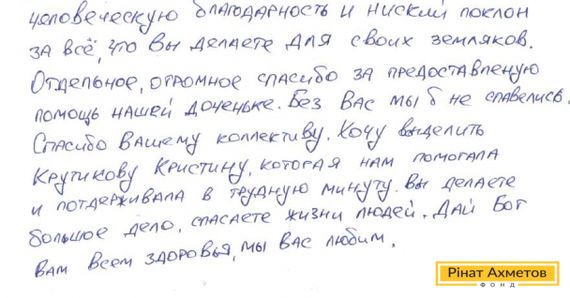 человеческую благодарность и ниский поклон
за всё, что Вы делаете для своих земляков.
Отдельное, огромное спасибо за предоставленую
помощь нашей доченьке. Без Вас мы б не справелись.
Спасибо Вашему коллективу. Хочу выделить
Крутикову Кристину, которая нам помогала
и потдерживала в трудную минуту. Вы делаете
большое дело, спасаете жизни людей. Дай Бог
Вам всем здоровья, мы Вас любим.
Рінат Ахметов
ФОНД